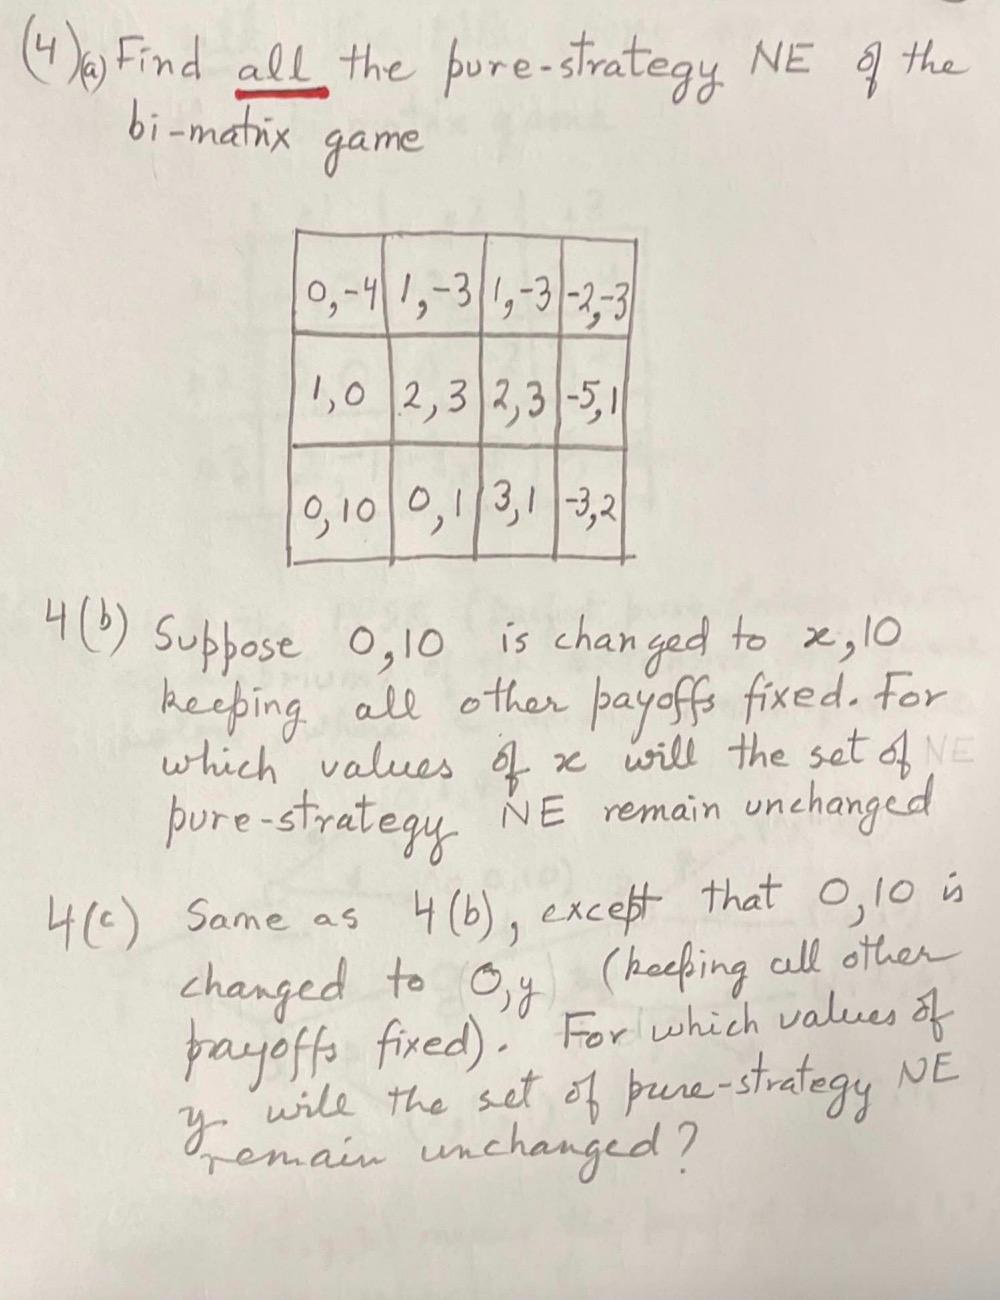 (4)(a) Find all the pure-strategy NE of the
bi-matrix game
0,-4 1,-3 1,-3 -2,-3
1,0 2,3 2,3 -5,1
0,10 0,1 3,1 -3,2
4(b) Suppose 0,10 is changed to x,10
keeping all other payoffs fixed. For
which values of x will the set of NE
pure-strategy NE remain unchanged
4(c) Same as 4(b), except that 0,10 is
changed to 0,y (keeping all other
payoffs fixed). For which values of
y will the set of pure-strategy NE
remain unchanged?